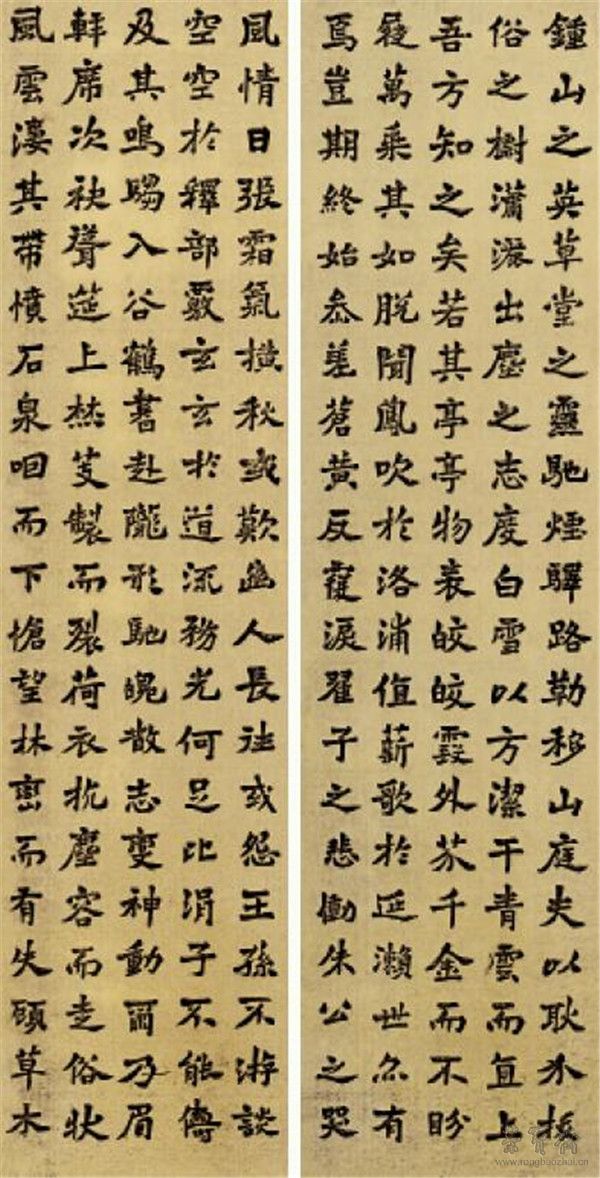 鍾山之英草堂之靈馳煙驛路勒移山庭夫以耿介拔
俗之樹瀟灑出塵之志度白雪以方潔干青雲而直上
吾方知之矣若其亭亭物表皎皎霞外芥千金而不盼
屣萬乘其如脫聞鳳吹於洛浦值薪歌於延瀨世亦有
焉豈期終始參差蒼黃反覆淚翟子之悲慟朱公之哭
風情日張霜氣橫秋或歎幽人長往或怨王孫不游談
空空於釋部覈玄玄於道流務光何足比涓子不能儔
及其鳴騶入谷鶴書赴隴形馳魄散志變神動爾乃眉
軒席次袂聳筵上焚芰製而裂荷衣抗塵容而走俗狀
風雲淒其帶憤石泉咽而下愴望林巒而有失顧草木
www.rongbaozhai.cn